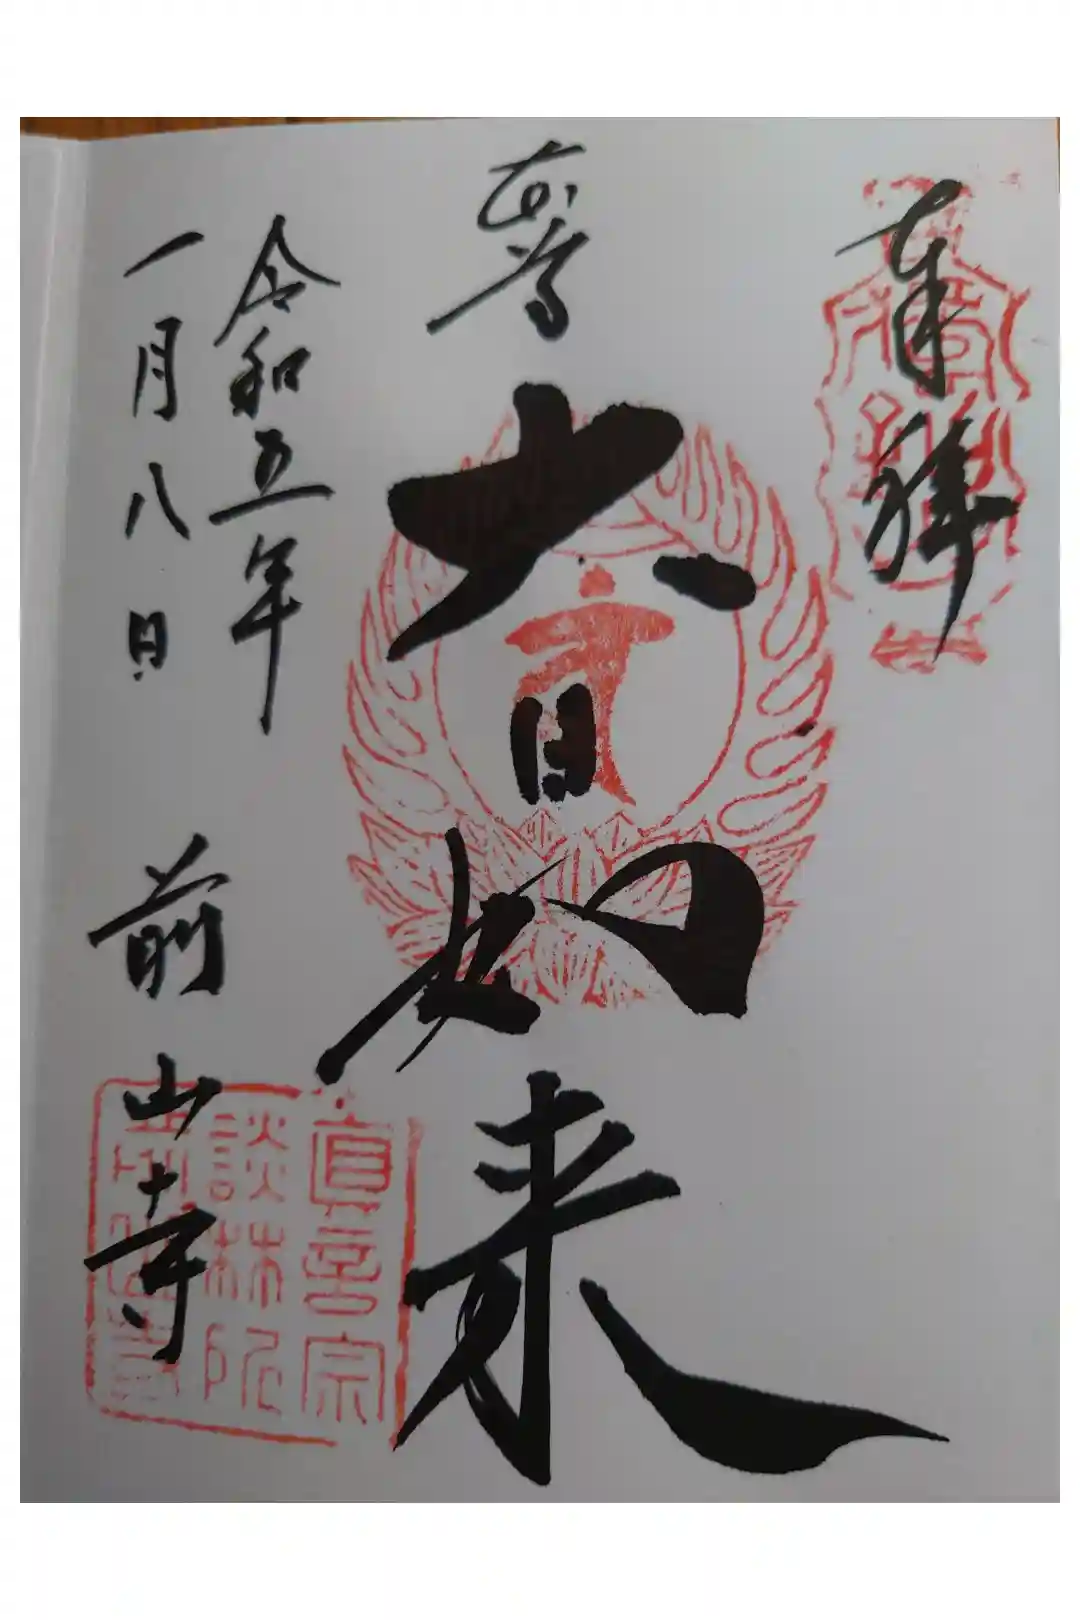 奉拝
大日如来
令和五年
一月八日
前山寺
眞言宗
談林院